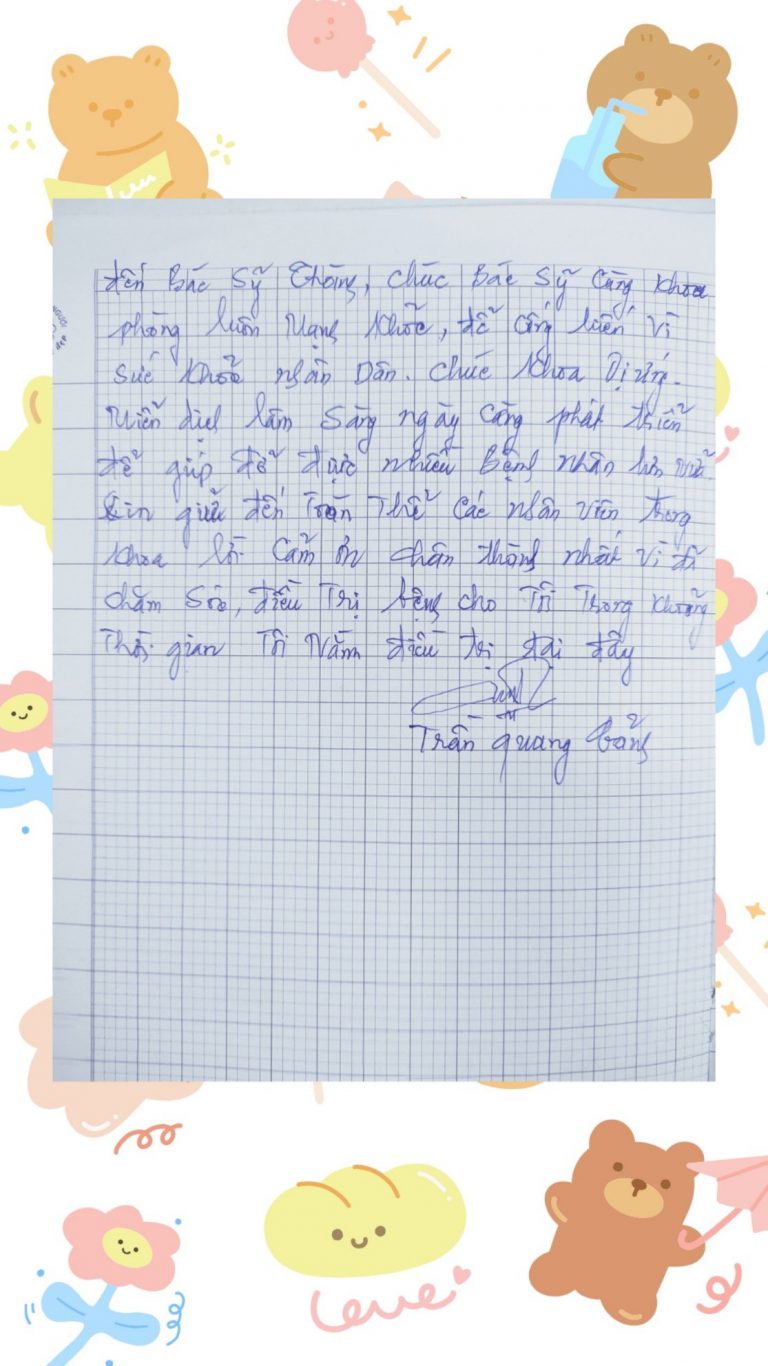 đến Bác Sỹ Thông, chúc Bác Sỹ Cùng Khoa
phòng luôn Mạng Khỏe, để cống hiến Vì
Sức Khỏe nhân Dân. Chúc Khoa Dị ứng.
Miễn dịch lâm Sàng ngày Càng phát triển
để giúp đỡ được nhiều Bệnh nhân hơn nữa
Xin gửi đến Toàn Thể Các nhân viên trong
Khoa lời Cảm ơn chân thành nhất vì đã
chăm Sóc, điều Trị bệnh cho Tôi Trong Khoảng
Thời gian Tôi Nằm điều trị tại đây
Trần Quang Bằng
Love